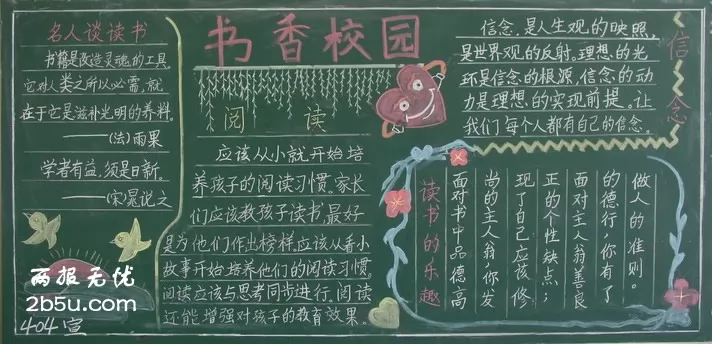 名人谈读书
书籍是改造灵魂的工具
它对人类之所以必需,就
在于它是滋补光明的养料.
——(法)雨果
学者有益,须是日新。
——(宋)晁说之
两报无优
2b5u.com
404宣
书香校园
阅读
应该从小就开始培
养孩子的阅读习惯.家长
们应该教孩子读书,最好
是为他们作出榜样.应该从看小
故事开始培养他们的阅读习惯。
阅读应该与思考同步进行.阅读
还能增强对孩子的教育效果。
信念,是人生观的映照,
是世界观的反射.理想的光
环是信念的根源,信念的动
力是理想的实现前提。让
我们每个人都有自己的信念。
信念
做人的准则。
的德行,你有了
面对主人翁善良
正的个性缺点;
现了自己应该修
尚的主人翁,你发
面对书中品德高
读书的乐趣